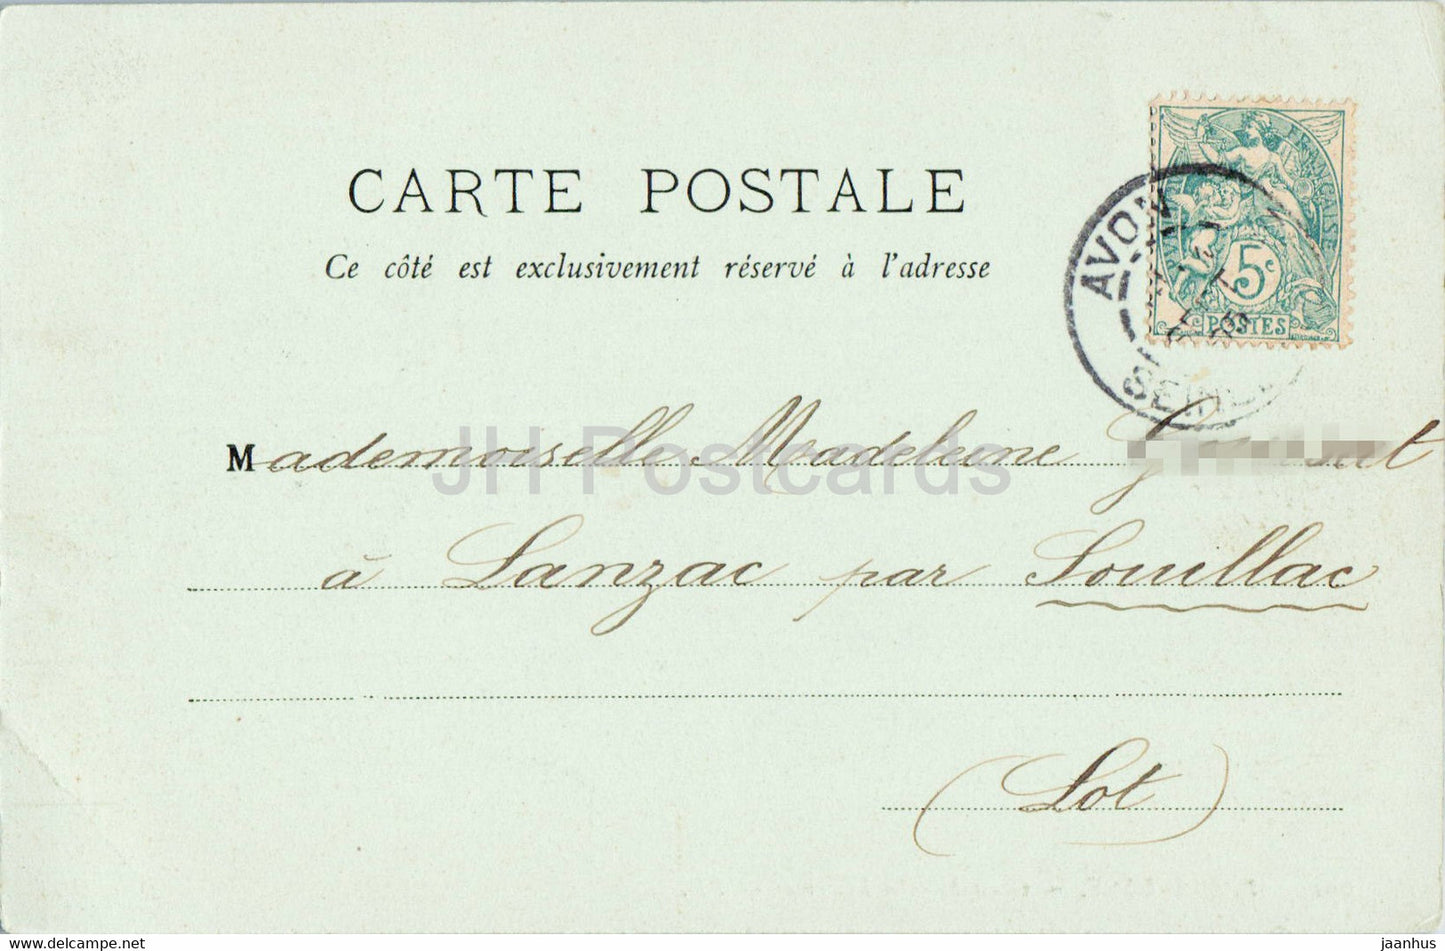 CARTE POSTALE
Ce côté est exclusivement réservé à l'adresse
FRANÇAISE
5c
POSTES
AVON
Mademoiselle Madeleine
à Lanzac par Souillac
(Lot)
JH Postcards
jaanhus